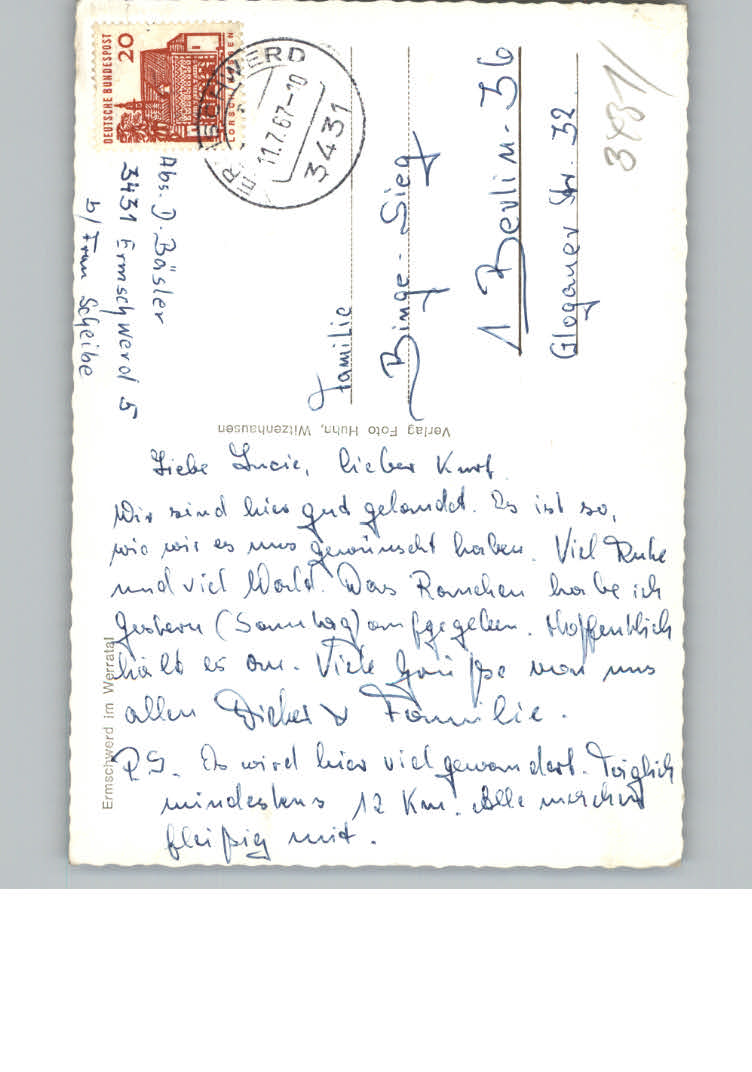 Liebe Lucie, lieber Kurt.
Wir sind hier gut gelandet. Es ist so,
wie wir es uns gewünscht haben. Viel Ruhe
und viel Wald. Das Rauchen habe ich
gestern (Sonntag) aufgegeben. Hoffentlich
hält es an. Viele Grüße von uns
allen Dieter u Familie.
P.S. Es wird hier viel gewandert. Täglich
mindestens 12 Km. Alle machen
fleißig mit.
Ermschwerd im Werratal
Verlag Foto Huhn, Witzenhausen
Abs. D. Bäsler
3431 Ermschwerd 5
b/ Frau Scheibe
DEUTSCHE BUNDESPOST
20
LORSCH
ERMSCHWERD
11.7.67-10
3431
Familie
Binge-Sieg
1 Berlin-36
Glogauer Str. 32
3431/